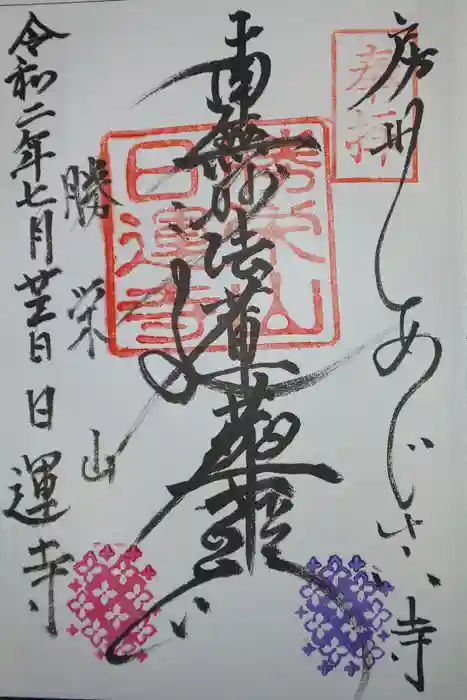 奉拝
房州あじさい寺
南無妙法蓮華経
勝栄山
日運寺
勝栄山
令和二年七月廿五日 日運寺